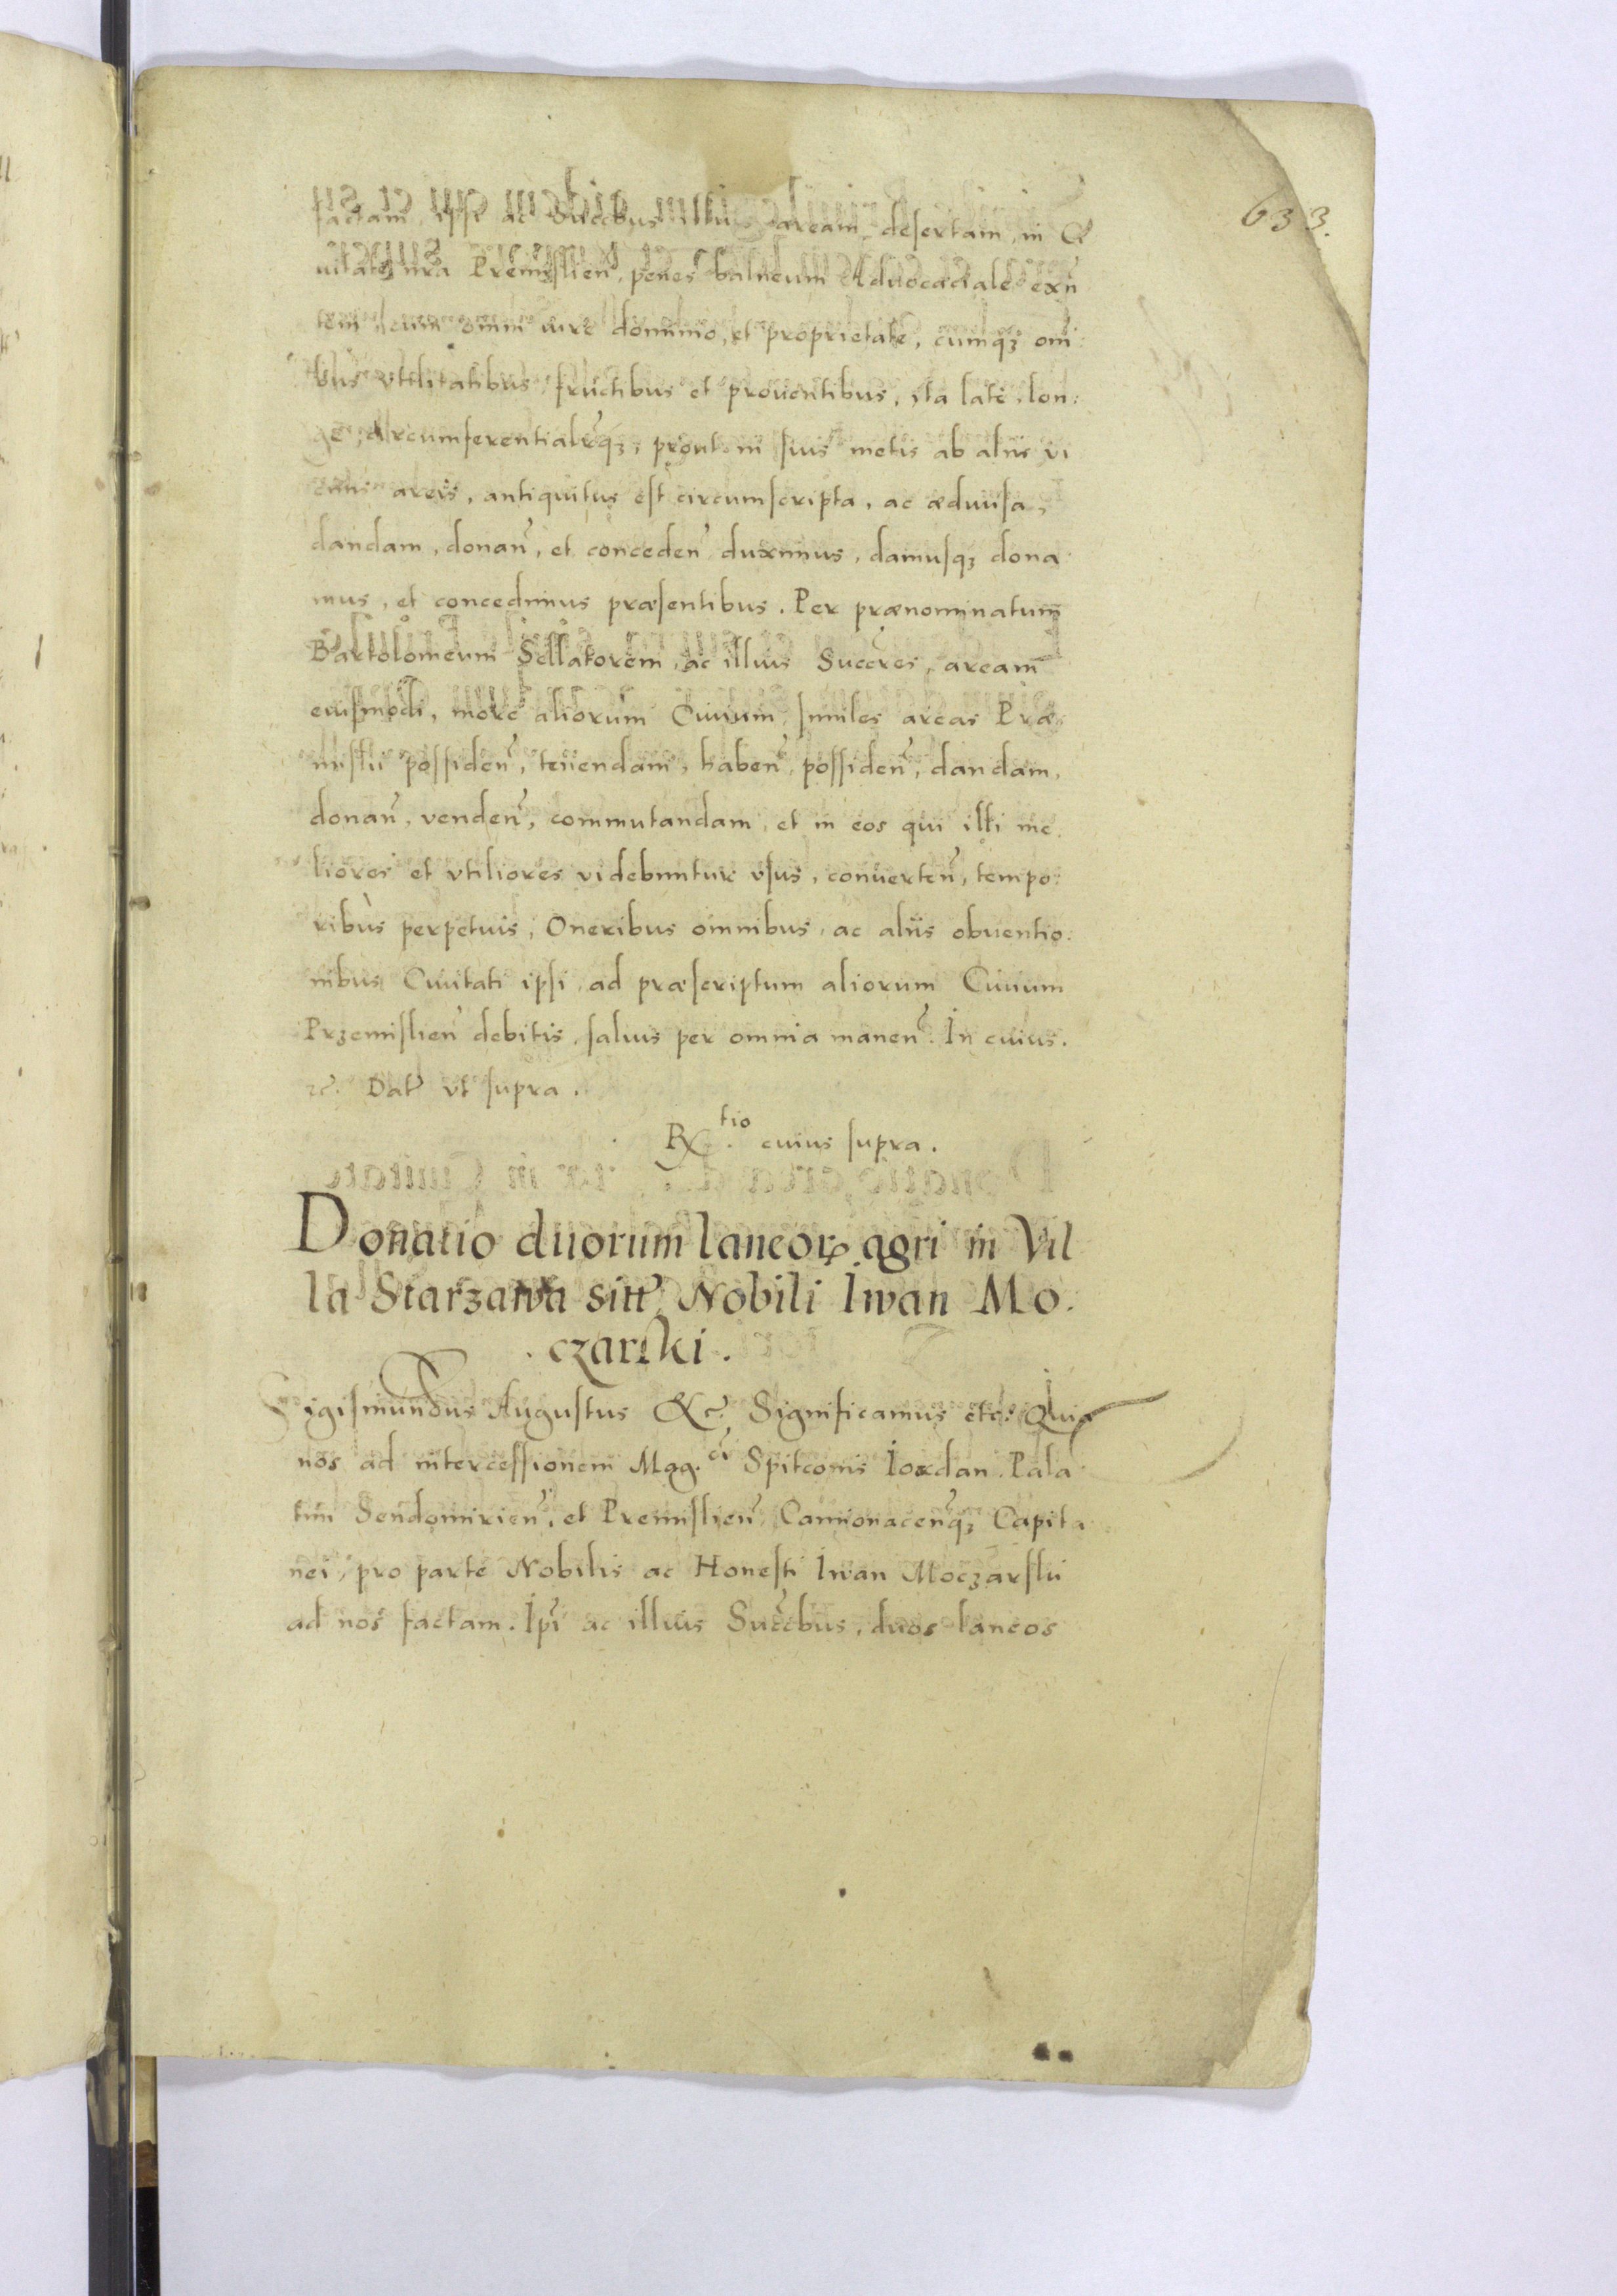 633.
factam ipsi ac Succbus illiu aream desertam, in Ci
uitate nra Premislien̄, penes balneum Aduocatiale exn̄
tem cum omni iure dominio, et proprietate, cumq₃ omi
bus vtilitatibus, fructibus et prouentibus, ita late, lon:
ge, circumferentialrq₃, prout in suis metis ab aliis vi
cinis areis, antiquitus est circumscripta, ac ædiuisa,
dandam, donan̄, et conceden̄ duximus, damusq₃ dona
mus, et concedimus præsentibus. Per prænominatum
Bartolomeum Sellatorem, ac illius Succres, aream
eiusmodi, more aliorum Ciuium, similes areas Præ
mislii possiden̄, tenendam, haben̄, possiden̄, dandam,
donan̄, venden̄, commutandam, et in eos qui illi me
liores et vtiliores videbuntur vsus, conuerten̄, tempo:
ribus perpetuis, Oneribus omnibus, ac aliis obuentio:
nibus Ciuitati ipsi, ad præscriptum aliorum Ciuium
Przemislien̄ debitis, saluis per omnia manen̄. In cuius.
rc̄. Dat̄ vt supra.
Rtio cuius supra.
Donatio duorum laneorꝝ agri in Vil
la Starzawa sitt̄ Nobili Iwan Mo.
czarski.
Sigismundus Augustus &c̄. Significamus etc: Quia
nos ad intercessionem Mag.ci Spitconis Iordan. Pala
tini Sendomirien̄, et Premislien̄, Camionacen̄q₃ Capita
nei, pro parte Nobilis ac Honesti Iwan Moczarskii
ad nos factam. Ipi ac illius Succbus, duos laneos